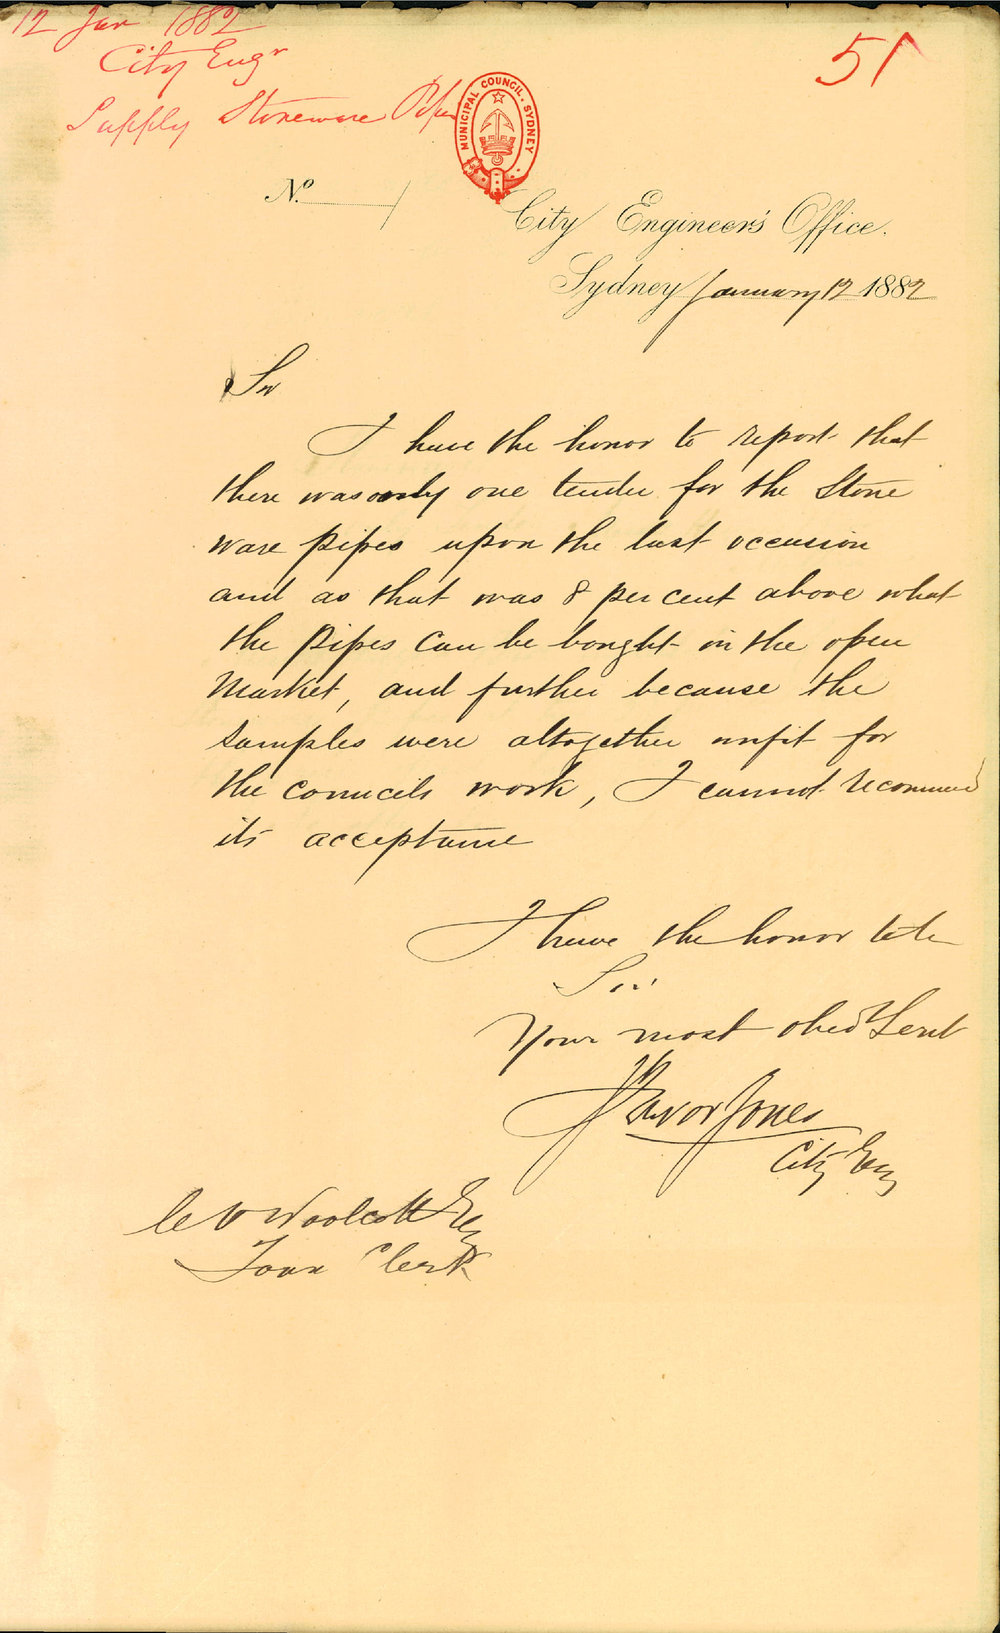 12 Jan 1882
City Engr
Supply Stoneware Pipes
51
MUNICIPAL COUNCIL. SYDNEY
No.
City Engineer's Office.
Sydney January 12 1882
Sir
I have the honor to report that
there was only one tender for the Stone
ware pipes upon the last occasion
and as that was 8 per cent above what
the pipes can be bought in the open
Market, and further because the
samples were altogether unfit for
the councils work, I cannot recommend
its acceptance
I have the honor to be
Sir
Your most obed Servt
J Trevor Jones
City Eng
C H Woolcott Esq
Town Clerk